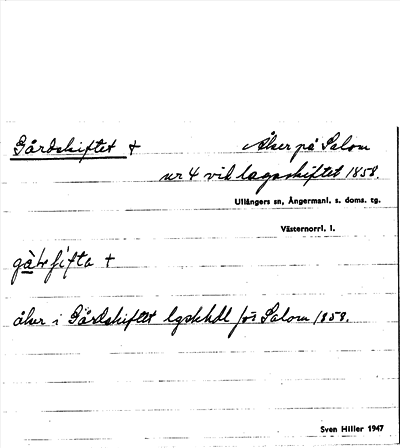 Gårdskiftet † Åker på Salom
nr 4 vid lagaskiftet 1858.
Ullångers sn, Ångermanl. s. doms. tg.
Västernorrl. l.
åker i Gårdskiftet lgskhdl för Salom 1858.
Sven Hiller 1947